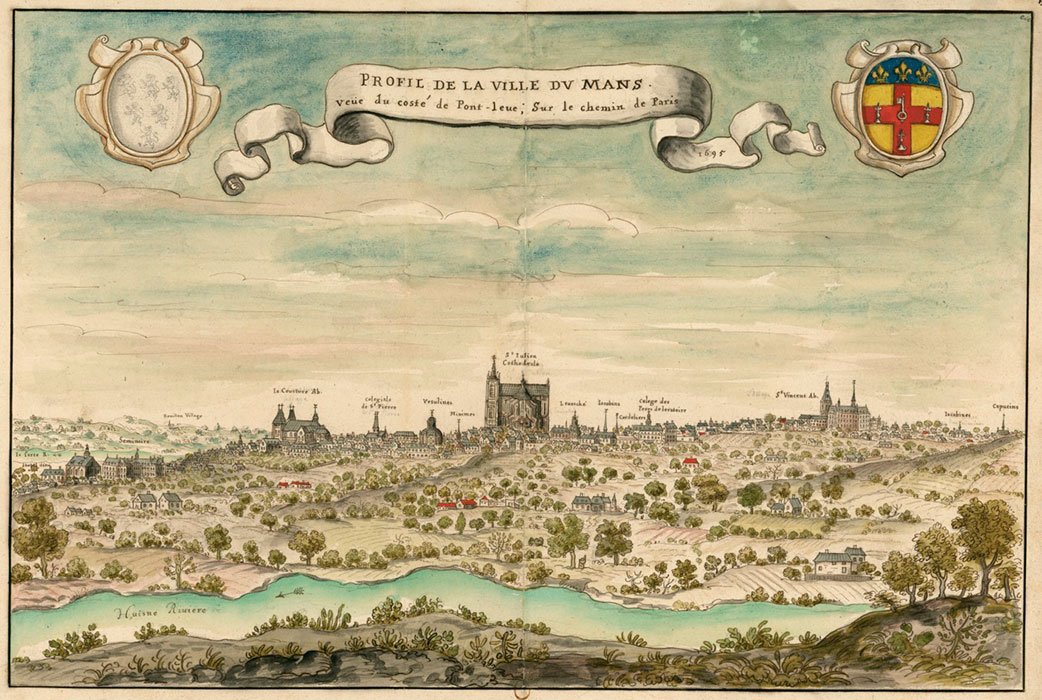 PROFIL DE LA VILLE DV MANS.
veüe du costé de Pont-leue; Sur le chemin de Paris
1695
St Iulien
Cathedrale
la Couture Ab.
Colegiale
de St Pierre
Vrsulines
Minimes
Leuesché
Iacobins
Cordeliers
Colege des
Peres de loratoire
St Vincent Ab.
Iacobines
Capucins
Village
Seminaire
la Sarte R.
Huisne Riuiere